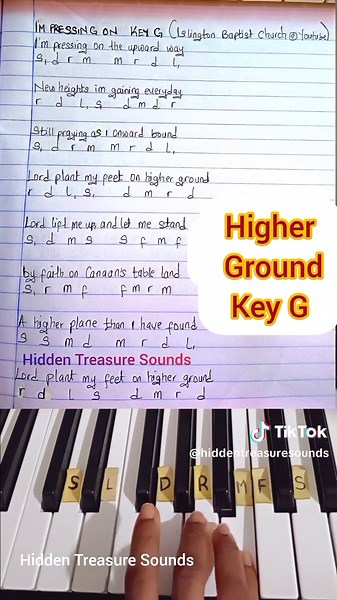 I'M PRESSING ON KEY G (Islington Baptist Church @ Youtube)
I'm pressing on the upward way
s, d r m m r d l,
New heights im gaining everyday
r d l, s, d m d r
Still praying as I onward bound
s, d r m m r d l,
Lord plant my feet on higher ground
r d l, s, d m r d
Lord lift me up and let me stand
s, d m s s f m f
by faith on Canaan's table land
s, r m f f m r m
A higher plane than I have found
s s m d m r d l,
Lord plant my feet on higher ground
r d l s d m r d
Higher
Ground
Key G
Hidden Treasure Sounds
TikTok
@hiddentreasuresounds
S L D R M F S
Hidden Treasure Sounds